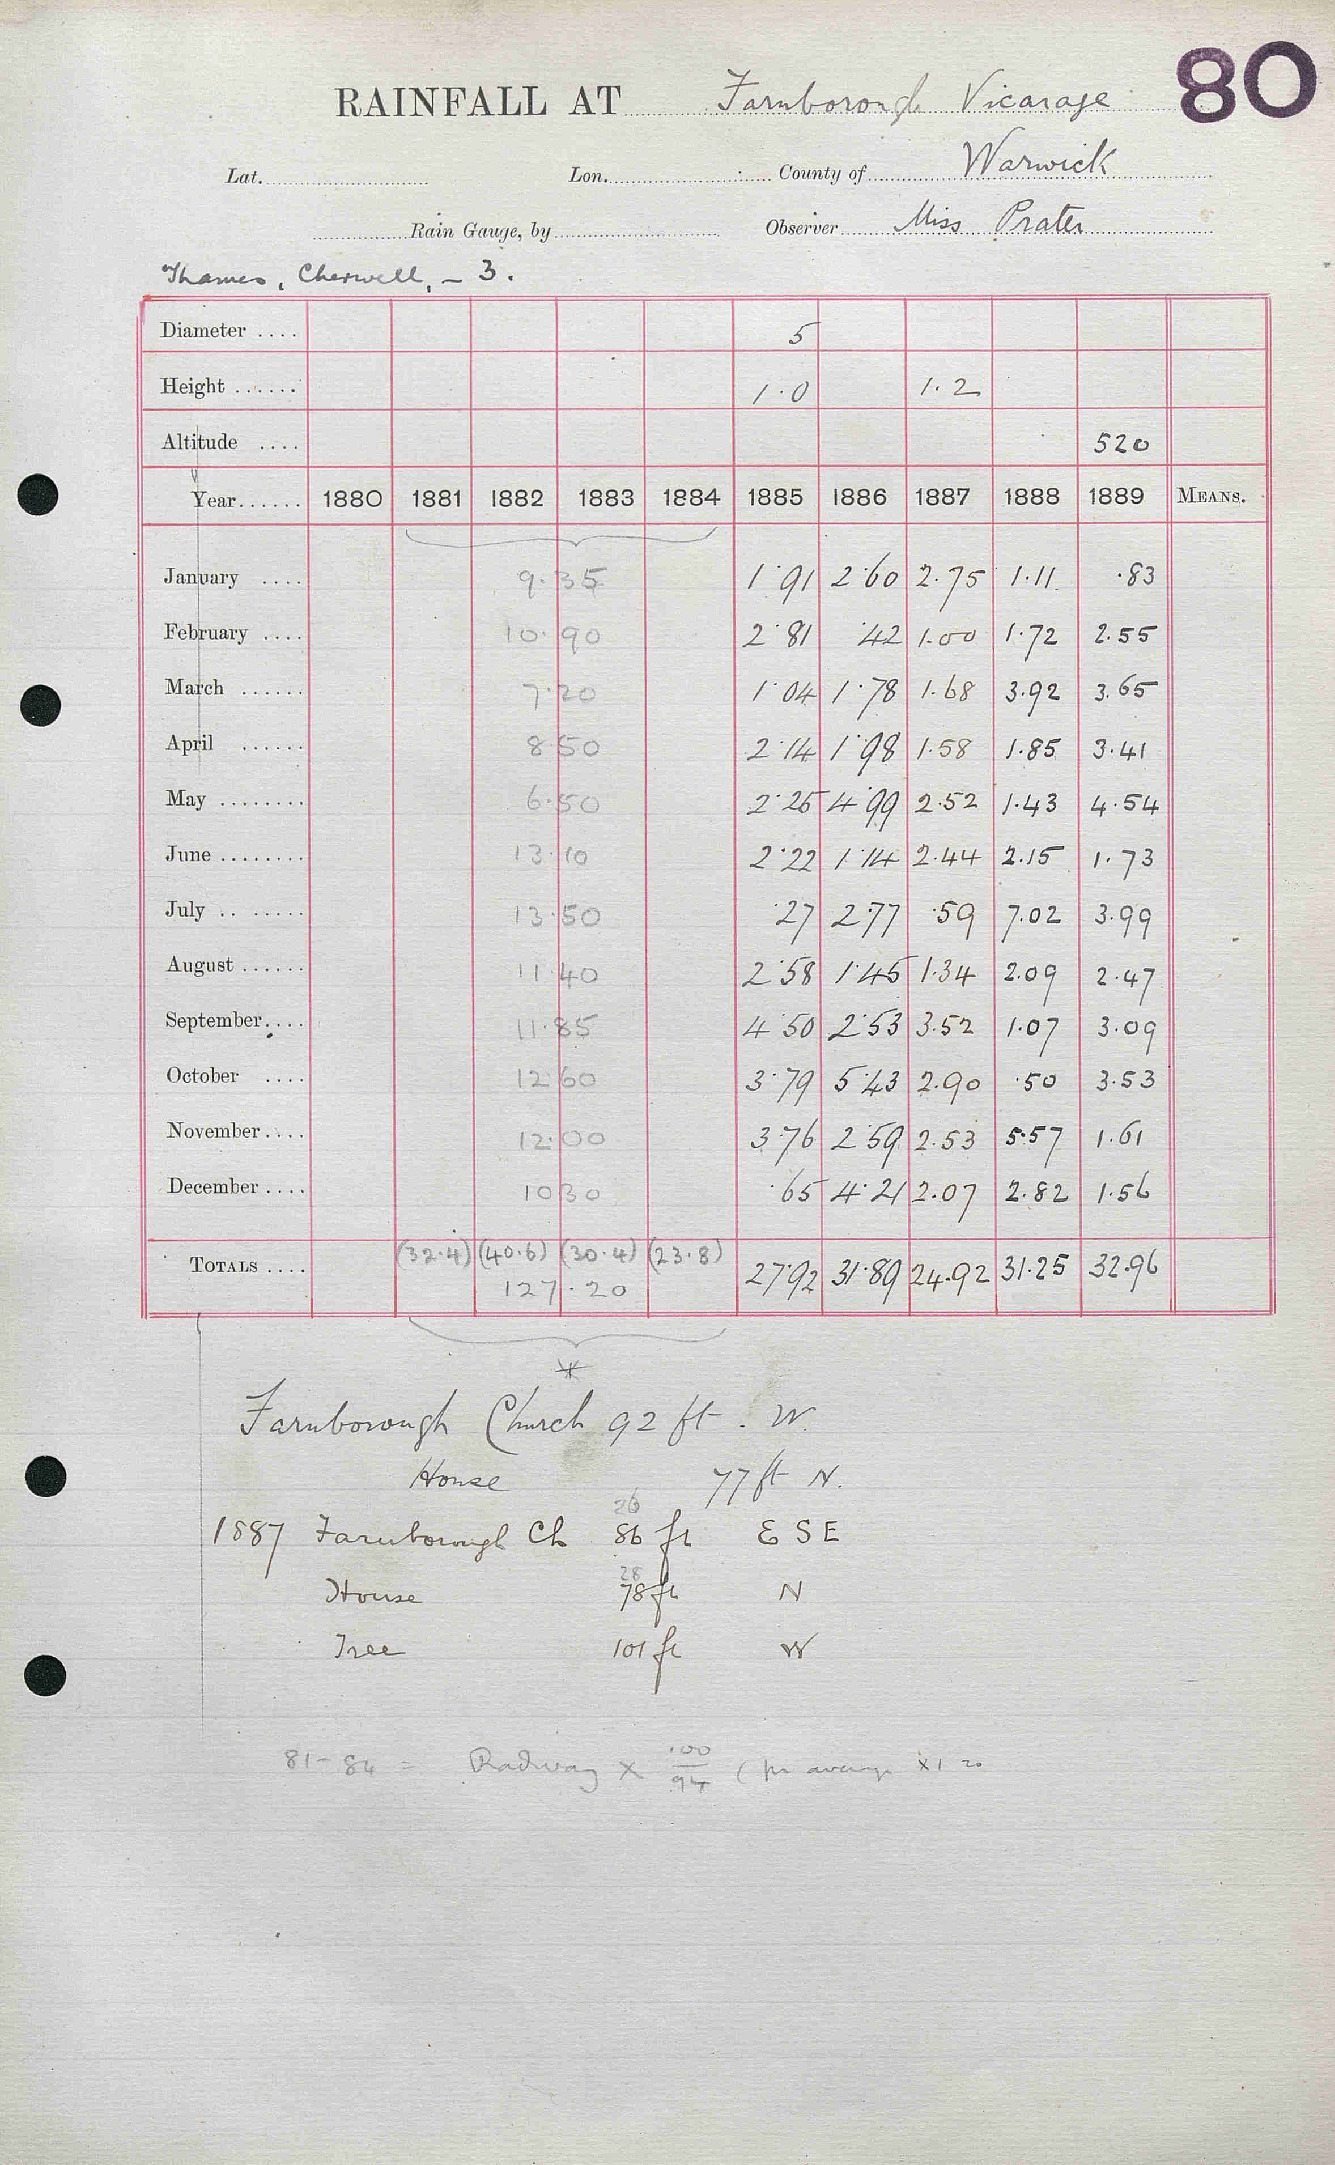 80
RAINFALL AT Farnborough Vicarage
Lat. Lon. County of Warwick
Rain Gauge, by Observer Miss Prater
Thames, Cherwell, – 3.
Diameter .... 5
Height ...... 1.0 1.2
Altitude .... 520
Year...... 1880 1881 1882 1883 1884 1885 1886 1887 1888 1889 MEANS.
January .... 9.35 1.91 2.60 2.75 1.11 .83
February .... 10.90 2.81 .42 1.00 1.72 2.55
March ...... 7.20 1.04 1.78 1.68 3.92 3.65
April ...... 8.50 2.14 1.98 1.58 1.85 3.41
May ........ 6.50 2.25 4.99 2.52 1.43 4.54
June ........ 13.10 2.22 1.14 2.44 2.15 1.73
July .. ...... 13.50 .27 2.77 .59 7.02 3.99
August ...... 11.40 2.58 1.45 1.34 2.09 2.47
September.... 11.85 4.50 2.53 3.52 1.07 3.09
October .... 12.60 3.79 5.43 2.90 .50 3.53
November.... 12.00 3.76 2.59 2.53 5.57 1.61
December.... 10.30 .65 4.21 2.07 2.82 1.56
TOTALS .... (32.4) (40.6) (30.4) (23.8) 27.92 31.89 24.92 31.25 32.96
127.20
*
Farnborough Church 92 ft. W.
House 77 ft N.
26
1887 Farnborough Ch 86 ft E S E
28
House 78 ft N
Tree 101 ft W
81–84 = Radway × 100/94 ( average × 1 20